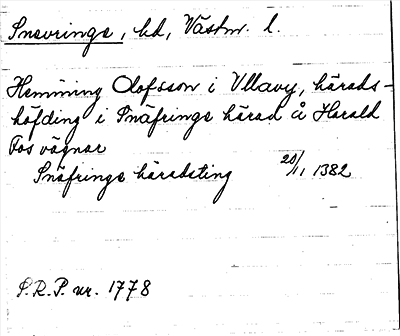 Snevringe, hd, Västm. l.
Hemming Olofsson i Ullavy, härads-
höfding i Snäfrings härad å Harald
Fos vägnar
Snäfrings häradsting 20/11 1382
S.R.P. nr. 1778